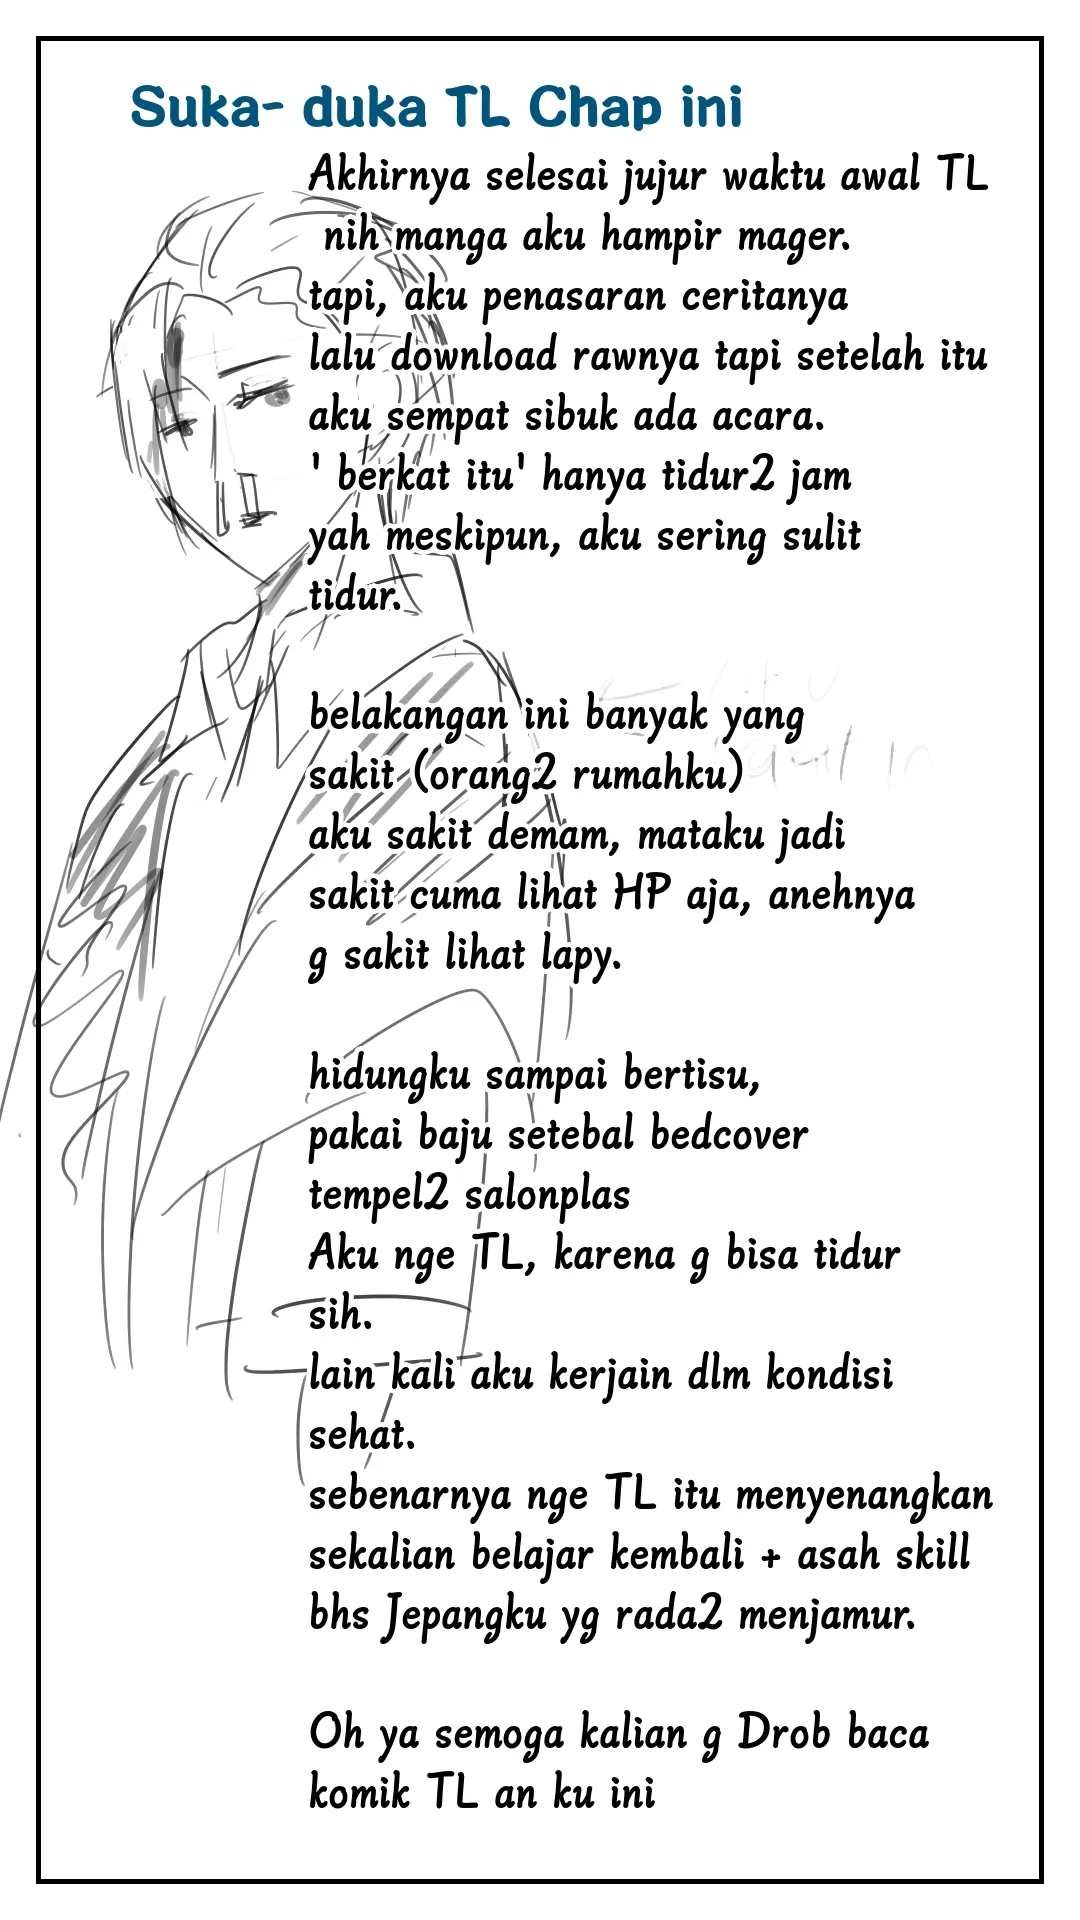 Suka- duka TL Chap ini
Akhirnya selesai jujur waktu awal TL
nih manga aku hampir mager.
tapi, aku penasaran ceritanya
lalu download rawnya tapi setelah itu
aku sempat sibuk ada acara.
' berkat itu' hanya tidur2 jam
yah meskipun, aku sering sulit
tidur.
belakangan ini banyak yang
sakit (orang2 rumahku)
aku sakit demam, mataku jadi
sakit cuma lihat HP aja, anehnya
g sakit lihat lapy.
hidungku sampai bertisu,
pakai baju setebal bedcover
tempel2 salonplas
Aku nge TL, karena g bisa tidur
sih.
lain kali aku kerjain dlm kondisi
sehat.
sebenarnya nge TL itu menyenangkan
sekalian belajar kembali + asah skill
bhs Jepangku yg rada2 menjamur.
Oh ya semoga kalian g Drob baca
komik TL an ku ini